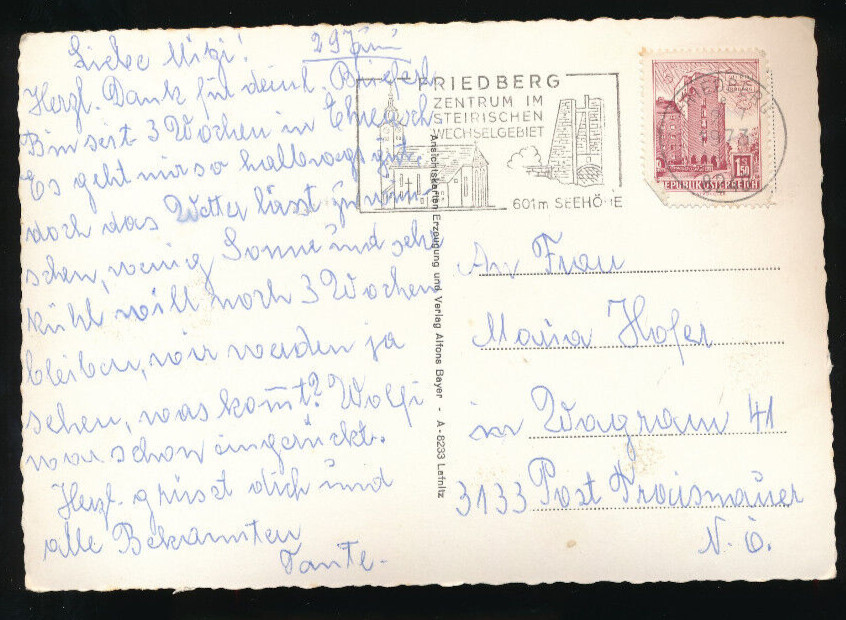 Liebe Mitzi! 29 Juni
Herzl. Dank für deinl. Brieferl
Bin seit 3 Wochen in
Es geht mir so halbwegs gut.
doch das Wetter lässt zu wün
schen, wenig Sonne und sehr
kühl will noch 3 Wochen
bleiben, wir werden ja
sehen, was kom̄t? Wolfi
war schon eingerückt.
Herzl. grüsst dich und
alle Bekannten
Tante.
FRIEDBERG
ZENTRUM IM
STEIRISCHEN
WECHSELGEBIET
601m SEEHÖHE
FRIEDBERG
1.50
REPUBLIK ÖSTERREICH
Ansichtskarten Erzeugung und Verlag Alfons Bayer - A-8233 Lafnitz
An Frau
Maria Hofer
in Wagram 41
3133 Post Traismauer
N. Ö.